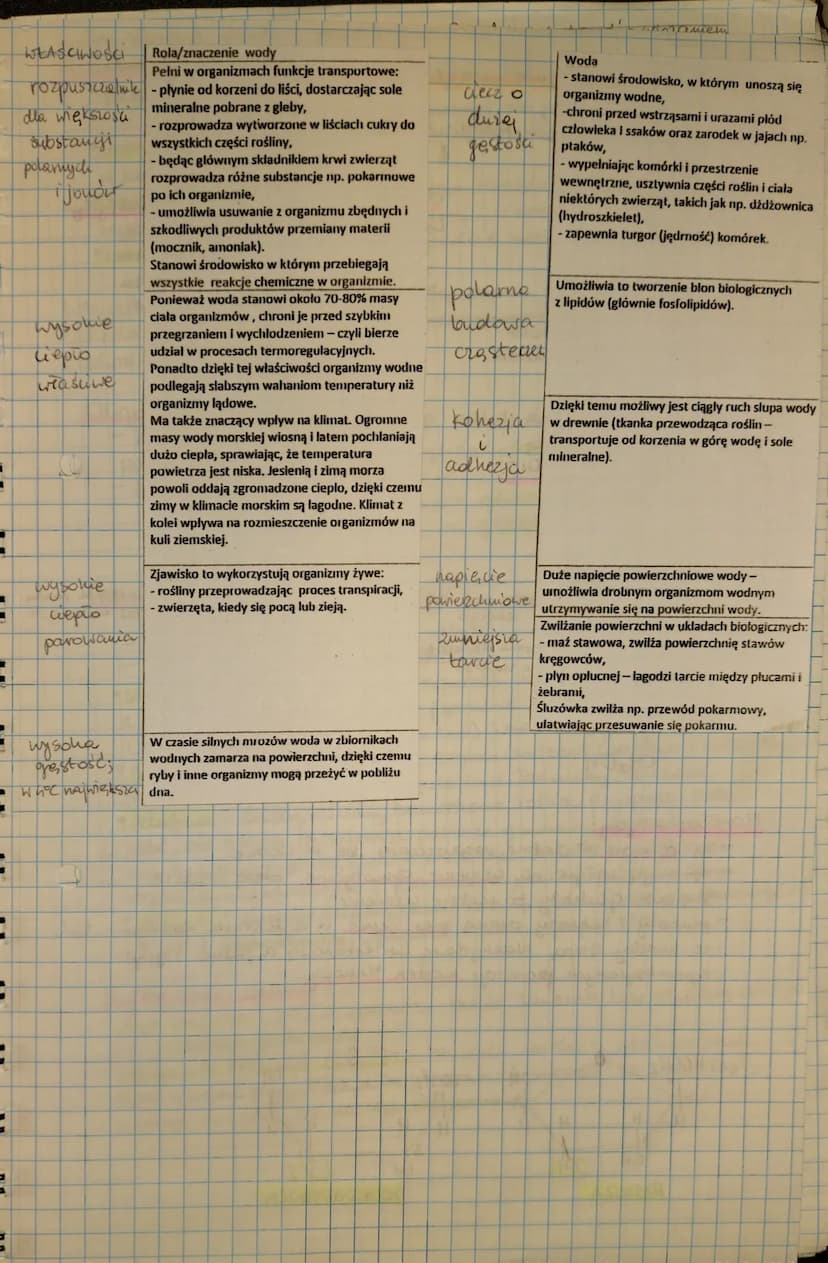 WŁAŚCIWOŚCI
Rola/znaczenie wody
rozpuszczalnik
dla większości
substancji
polarnych
i jonów
Pełni w organizmach funkcje transportowe:
- płynie od korzeni do liści, dostarczając sole
mineralne pobrane z gleby,
- rozprowadza wytworzone w liściach cukry do
wszystkich części rośliny,
- będąc głównym składnikiem krwi zwierząt
rozprowadza różne substancje np. pokarmowe
po ich organizmie,
- umożliwia usuwanie z organizmu zbędnych i
szkodliwych produktów przemiany materii
(mocznik, amoniak).
Stanowi środowisko w którym przebiegają
wszystkie reakcje chemiczne w organizmie.
wysokie
ciepło
właściwe
Ponieważ woda stanowi około 70-80% masy
ciała organizmów , chroni je przed szybkim
przegrzaniem i wychłodzeniem – czyli bierze
udział w procesach termoregulacyjnych.
Ponadto dzięki tej właściwości organizmy wodne
podlegają słabszym wahaniom temperatury niż
organizmy lądowe.
Ma także znaczący wpływ na klimat. Ogromne
masy wody morskiej wiosną i latem pochłaniają
dużo ciepła, sprawiając, że temperatura
powietrza jest niska. Jesienią i zimą morza
powoli oddają zgromadzone ciepło, dzięki czemu
zimy w klimacie morskim są łagodne. Klimat z
kolei wpływa na rozmieszczenie organizmów na
kuli ziemskiej.
wysokie
ciepło
parowania
Zjawisko to wykorzystują organizmy żywe:
- rośliny przeprowadzając proces transpiracji,
- zwierzęta, kiedy się pocą lub zieją.
wysoka
gęstość;
w 4°C największa
W czasie silnych mrozów woda w zbiornikach
wodnych zamarza na powierzchni, dzięki czemu
ryby i inne organizmy mogą przeżyć w pobliżu
dna.
ciecz o
dużej
gęstości
Woda
- stanowi środowisko, w którym unoszą się
organizmy wodne,
-chroni przed wstrząsami i urazami płód
człowieka i ssaków oraz zarodek w jajach np.
ptaków,
- wypełniając komórki i przestrzenie
wewnętrzne, usztywnia części roślin i ciała
niektórych zwierząt, takich jak np. dżdżownica
(hydroszkielet),
- zapewnia turgor (jędrność) komórek.
polarna
budowa
cząsteczki
Umożliwia to tworzenie błon biologicznych
z lipidów (głównie fosfolipidów).
kohezja
i
adhezja
Dzięki temu możliwy jest ciągły ruch słupa wody
w drewnie (tkanka przewodząca roślin –
transportuje od korzenia w górę wodę i sole
mineralne).
napięcie
powierzchniowe
Duże napięcie powierzchniowe wody –
umożliwia drobnym organizmom wodnym
utrzymywanie się na powierzchni wody.
zmniejsza
tarcie
Zwilżanie powierzchni w układach biologicznych:
- maź stawowa, zwilża powierzchnię stawów
kręgowców,
- płyn opłucnej – łagodzi tarcie między płucami i
żebrami,
Śluzówka zwilża np. przewód pokarmowy,
ułatwiając przesuwanie się pokarmu.